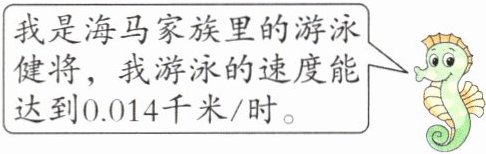 我是海马家族里的游泳
健将，我游泳的速度能
达到0.014千米/时。